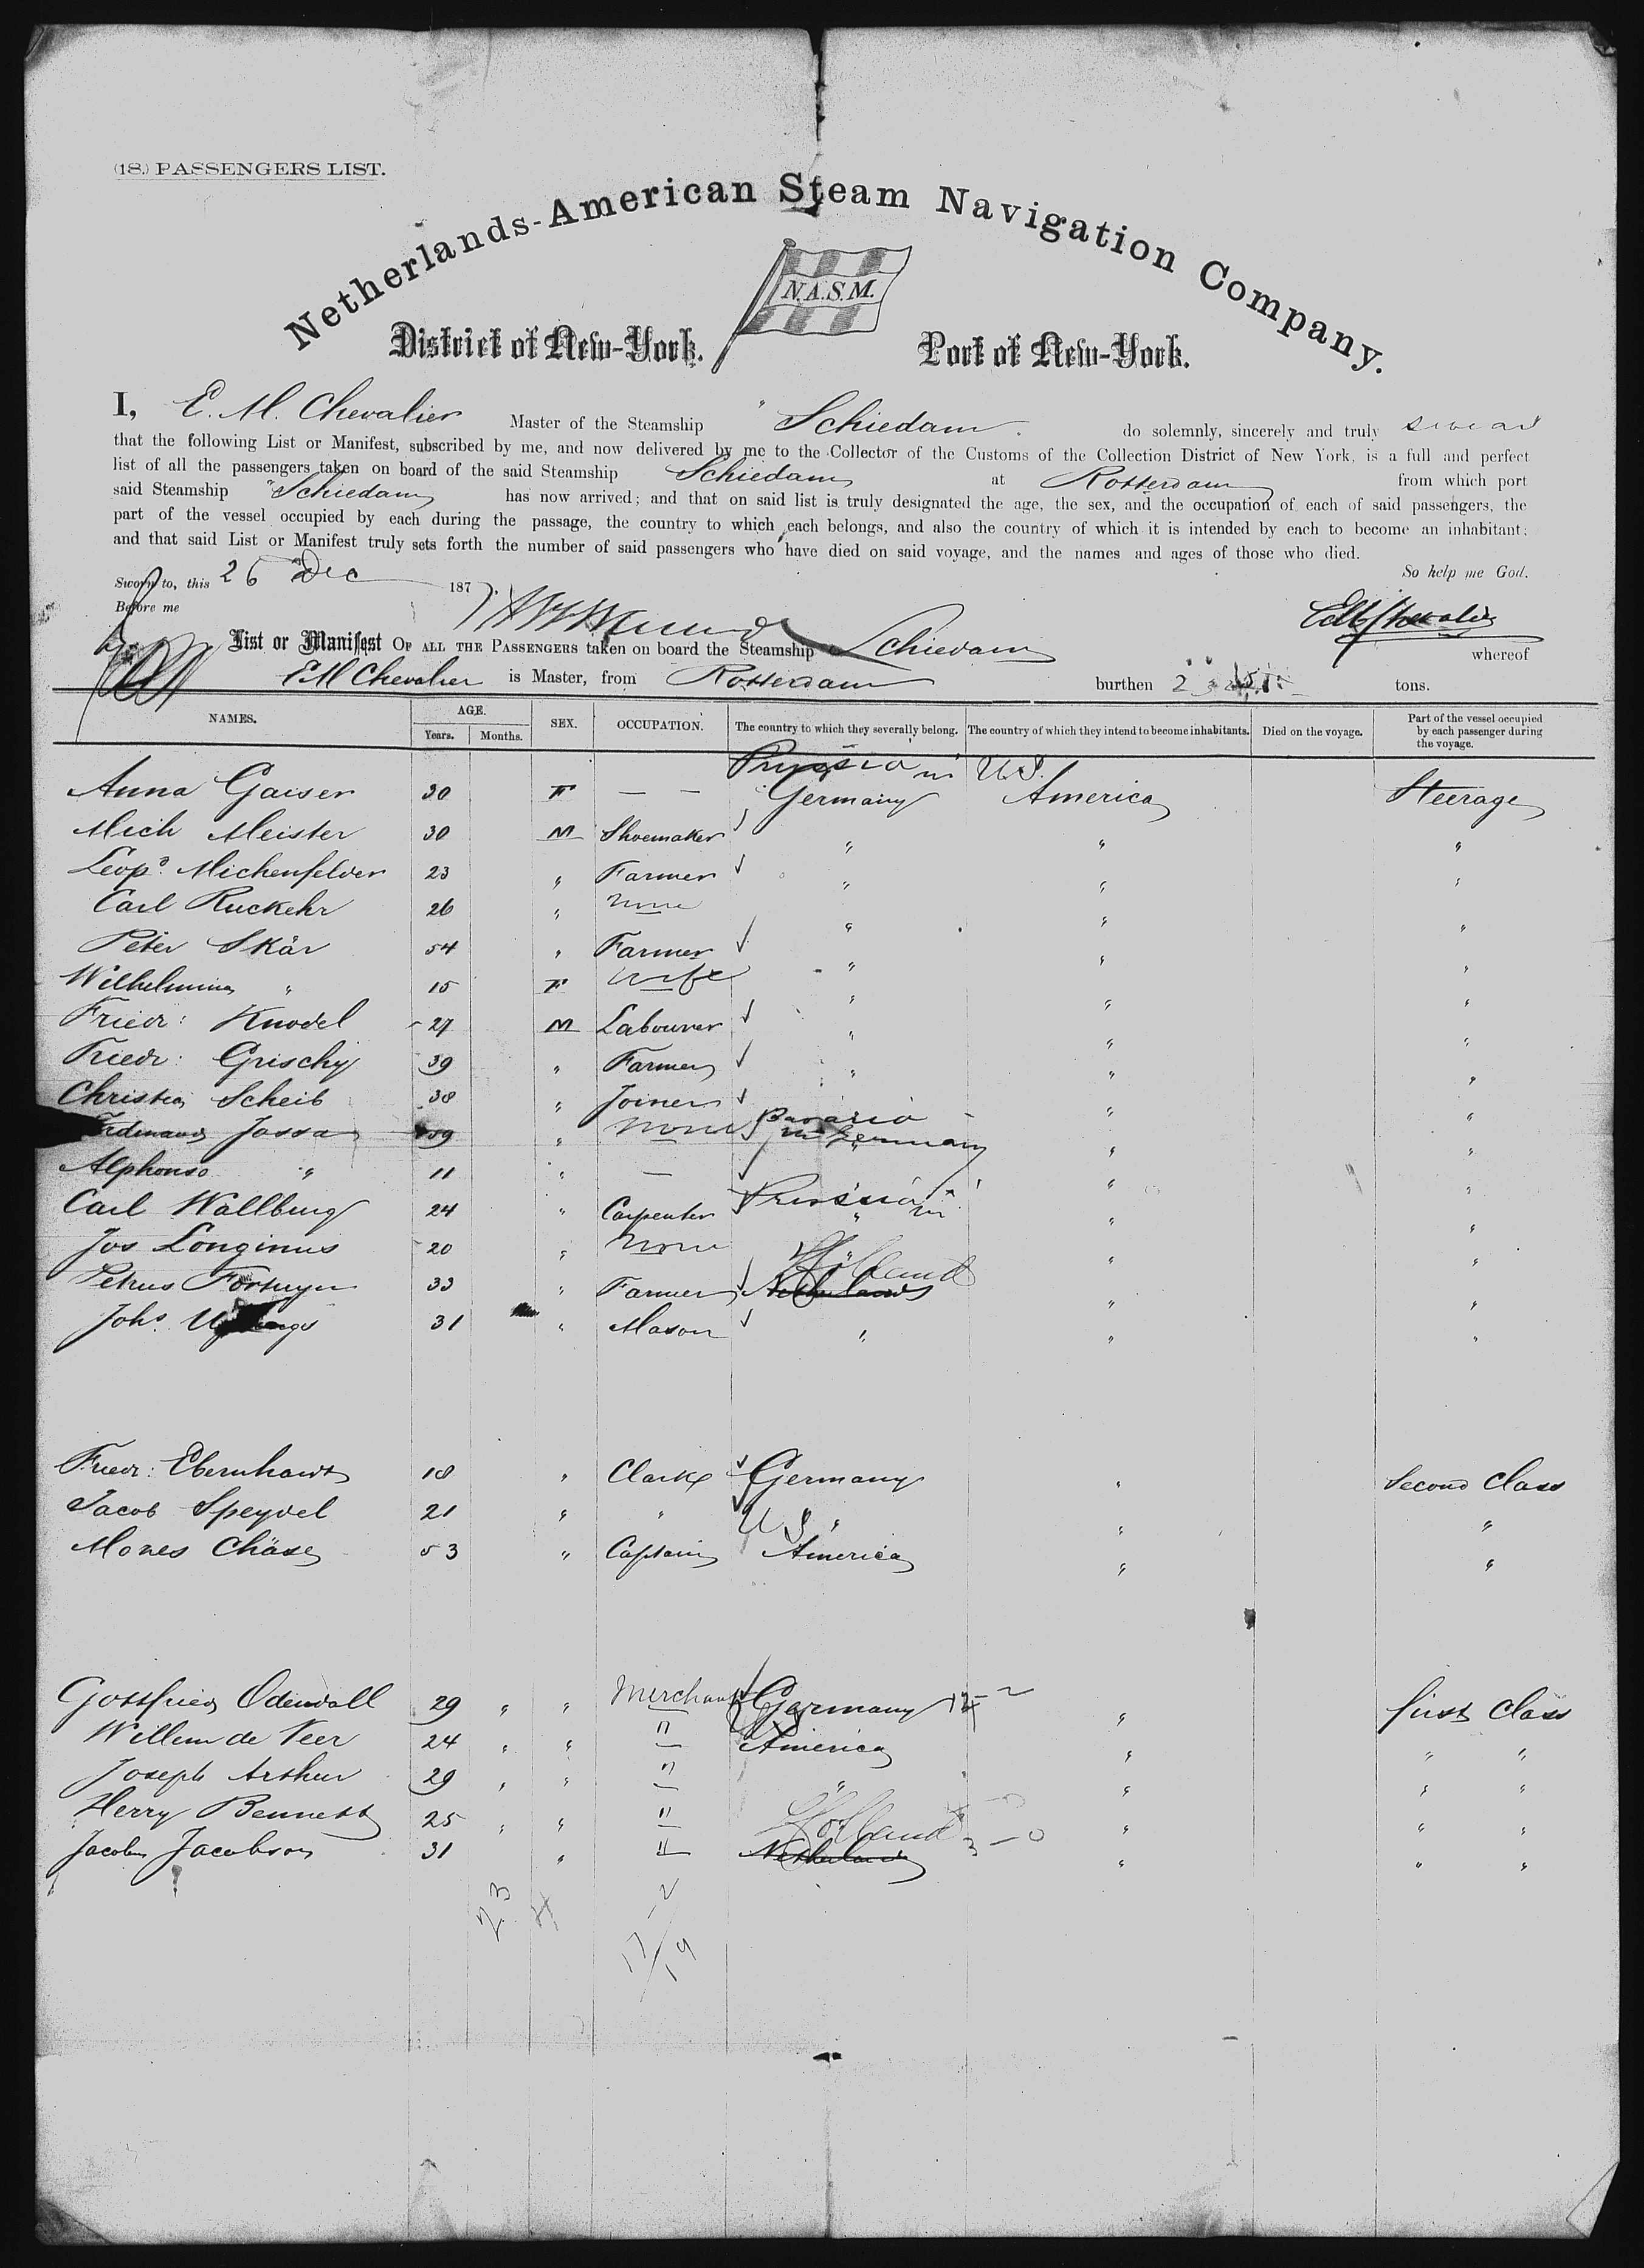 (18.) PASSENGERS LIST.
Netherlands-American Steam Navigation Company.
N.A.S.M.
District of New-York. Port of New-York.
I, E. M. Chevalier Master of the Steamship " Schiedam. do solemnly, sincerely and truly swear
that the following List or Manifest, subscribed by me, and now delivered by me to the Collector of the Customs of the Collection District of New York, is a full and perfect
list of all the passengers taken on board of the said Steamship Schiedam at Rotterdam from which port
said Steamship "Schiedam has now arrived; and that on said list is truly designated the age, the sex, and the occupation of each of said passengers, the
part of the vessel occupied by each during the passage, the country to which each belongs, and also the country of which it is intended by each to become an inhabitant;
and that said List or Manifest truly sets forth the number of said passengers who have died on said voyage, and the names and ages of those who died.
So help me God.
Sworn to, this 26 Dec 1877.
Before me
EM Chevalier
List or Manifest OF ALL THE PASSENGERS taken on board the Steamship Schiedam whereof
EM Chevalier is Master, from Rotterdam burthen tons.
NAMES. AGE. Years. Months. SEX. OCCUPATION. The country to which they severally belong. The country of which they intend to become inhabitants. Died on the voyage. Part of the vessel occupied by each passenger during the voyage.
Prussia in U.S.
Anna Gaiser 30 F — — Germany America Steerage
Mich Meister 30 M Shoemaker " " "
Leopd. Michenfelder 23 " Farmer " " "
Carl Ruckehr 26 " none " " "
Peter Skär 54 " Farmer " " "
Wilhelmina " 15 F wife " " "
Friedr: Knodel 27 M Labourer " " "
Friedr: Grischy 39 " Farmer " " "
Christia Scheib 38 " Joiner " "
Jossa 59 " none Bavaria in Germany " "
Alphonso " 11 " — " "
Carl Wallburg 24 " Carpenter Prussia in " " "
Jos Longinus 20 " none " "
Holland
Petrus Fortuyn 33 " Farmer Netherlands " "
Johs. 31 " Mason " " "
Friedr: Ebernhardt 18 " Clarke Germany " Second Class
Jacob Speydel 21 " " U S " " "
Mones Chäse 53 " Captain America " "
Gottfried Odenwall 29 " " Merchant Germany 12 - 2 " first Class
Willem de Veer 24 " " " America " " "
Joseph Arthur 29 " " " " " " "
Herry Bennett 25 " " " " " "
Holland 3 - 0
Jacobus Jacobson 31 " " Netherlands " " "
23 4 2
17/19